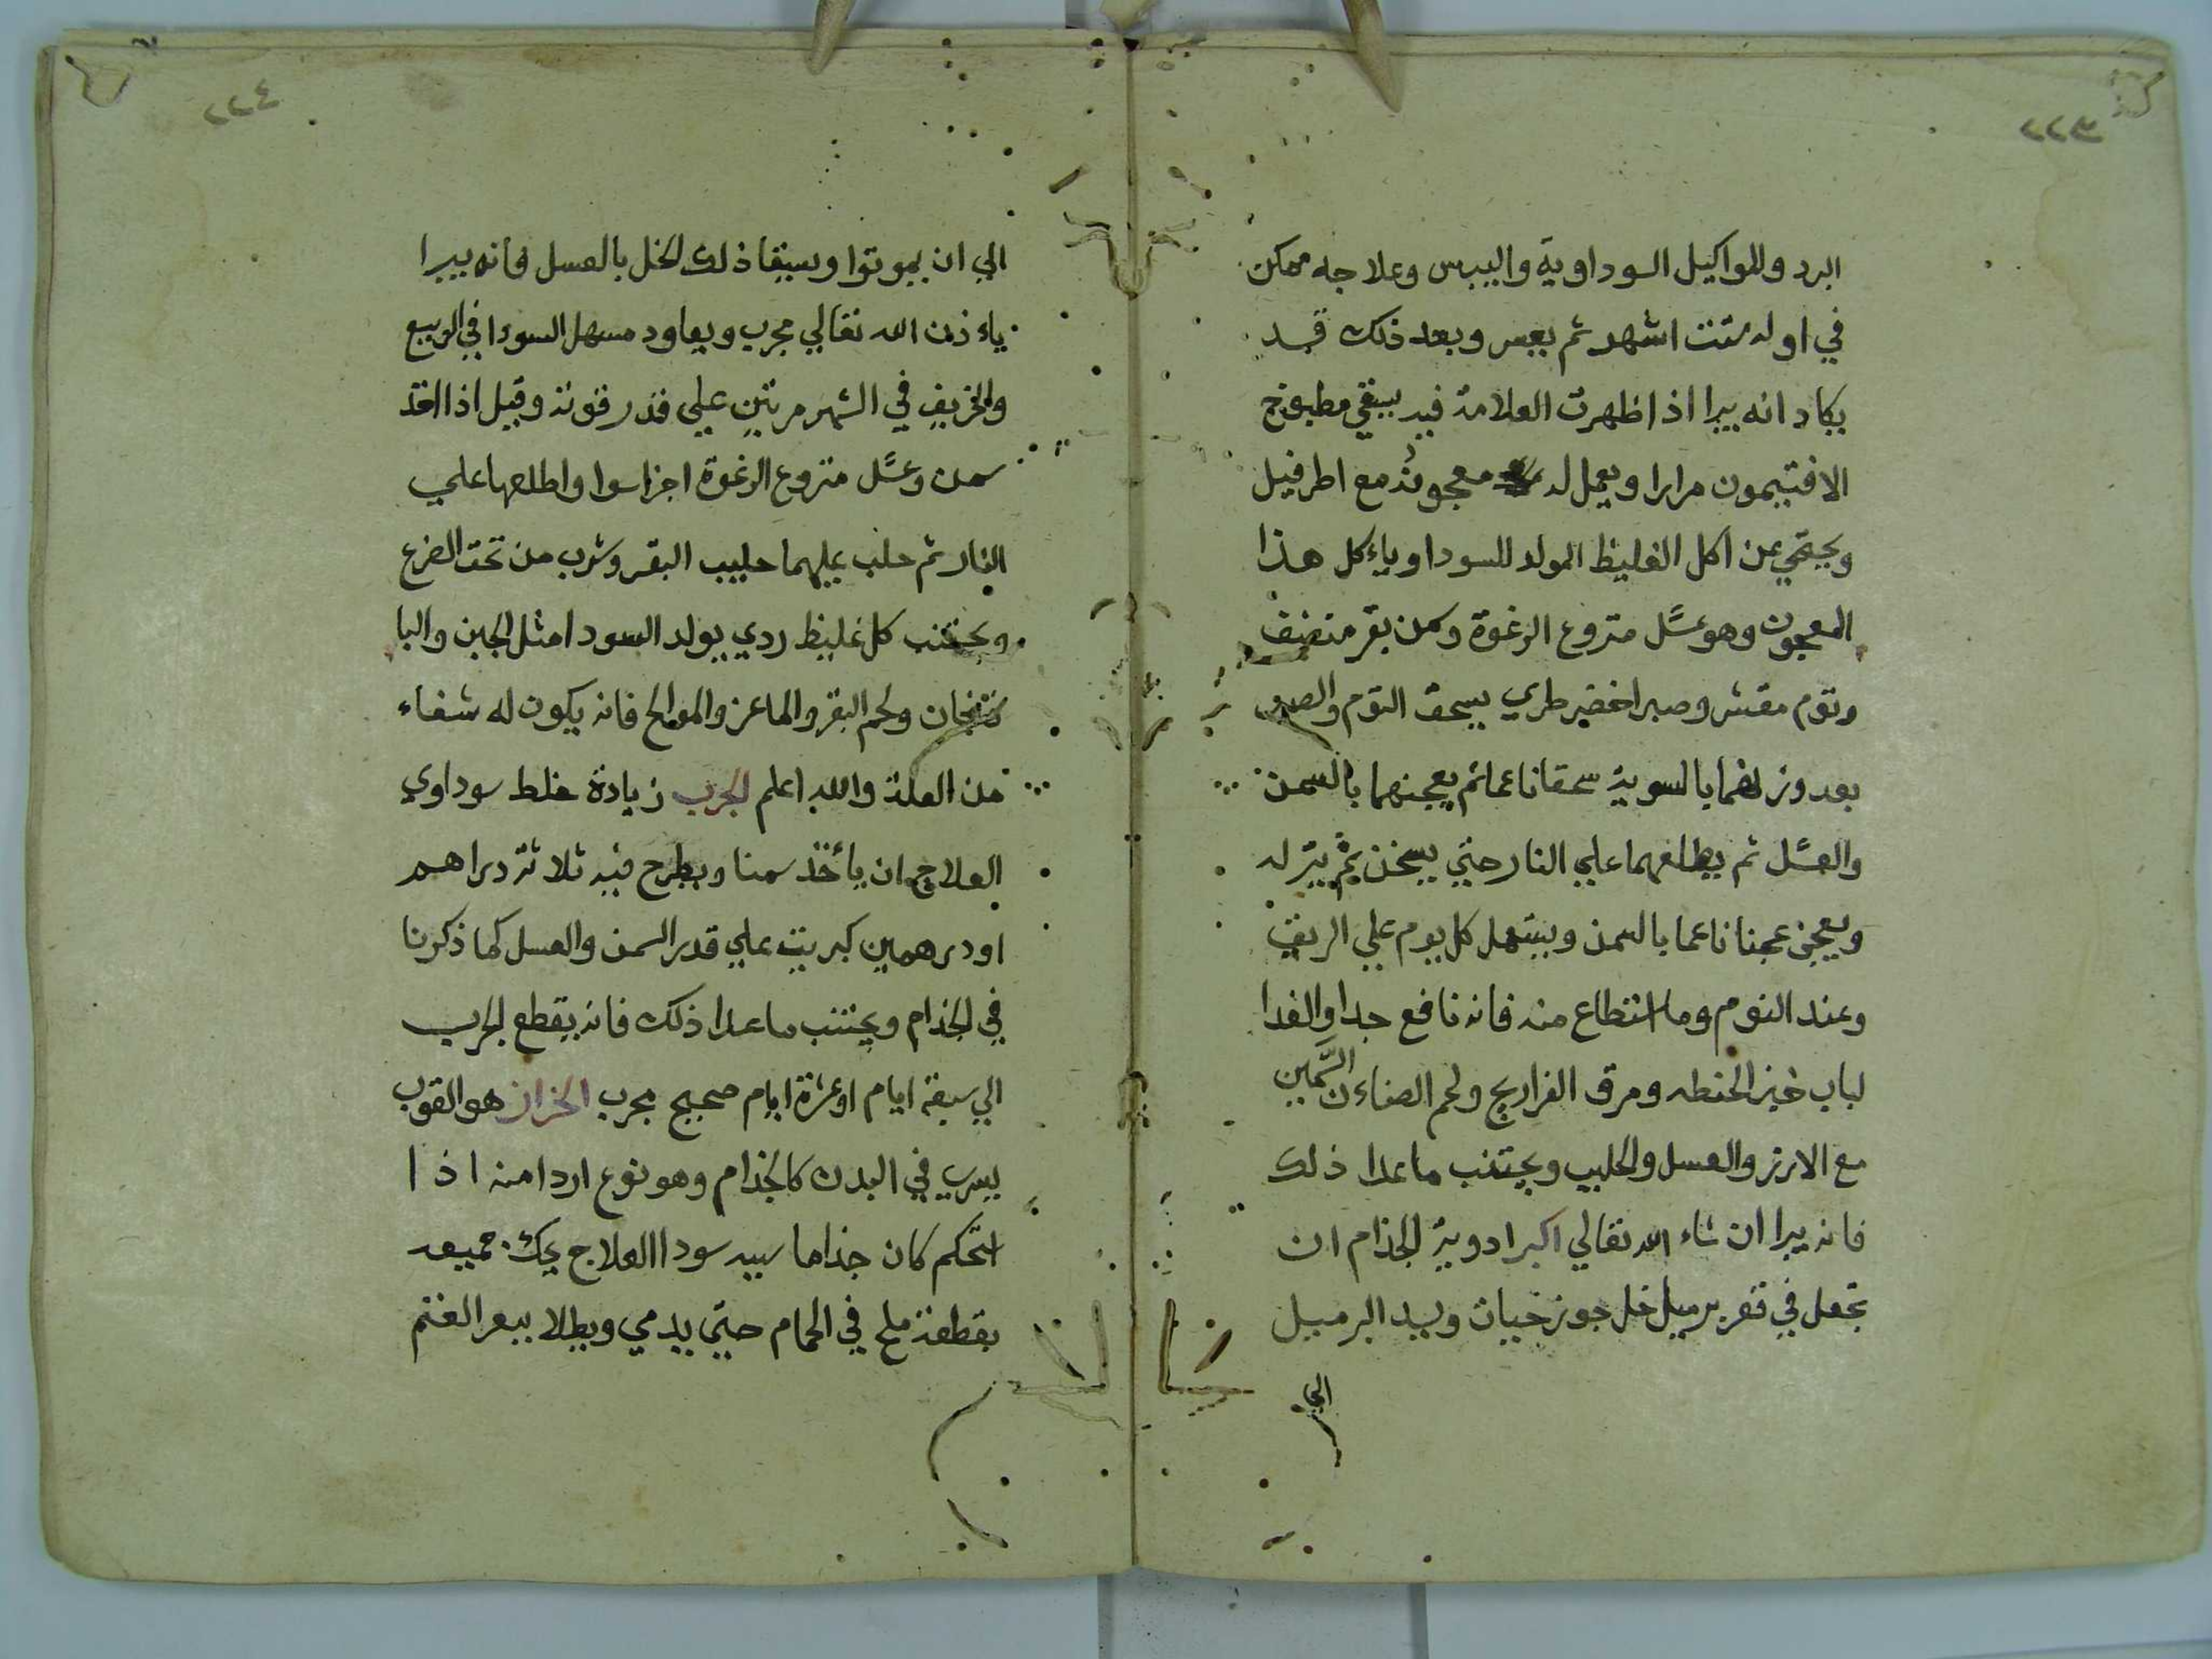 ٢٢٣
البرد وللواكيل السوداوية واليبس وعلاجه ممكن
في اوله ستت اشهر ثم يعسر وبعد ذلك قد
يكاد انه يبرا اذا ظهرت العلامة فيه يسقي مطبوخ
الافتيمون مرارا ويعمل له معجونه مع اطرفيل
ويحتمي عن اكل الغليظ المولد للسودا وياءكل هذا
المعجون وهو عسل منزوع الرغوة وسمن بقر منصف
وثوم مقشر وصبر اخضر طري يسحق الثوم والصبر
بعد وزنهما بالسوية سحقا ناعما ثم يعجنهما بالسمن
والعسل ثم يطلعهما علي النار حتي يسخن ثم ينزله
ويعجن عجنا ناعما بالسمن ويستعمل كل يوم علي الريق
وعند النوم وما استطاع منه فانه نافع جدا والغدا
لباب خبز الحنطه ومرق الفراريج ولحم الضاءن السمين
مع الارز والعسل والحليب ويجتنب ماعدا ذلك
فانه يبرا ان شاء الله تعالي اكبر ادوية الجذام ان
تجعل في قعر برميل خل جوز حيات ويسد البرميل
الي
٢٢٤
الي ان يموتوا ويسقا ذلك الخل بالعسل فانه يبرا
باءذن الله تعالي مجرب ويعاود مسهل السودا في الربيع
والخريف في الشهر مرتين علي قدر قوته وقيل اذا اخذ
سمن وعسل منزوع الرغوة اجزا سوا واطلعها علي
النار ثم حلب عليهما حليب البقر وشرب من تحت الضرع
ويجتنب كل غليظ ردي يولد السودا مثل الجبن والبا
ذنجان ولحم البقر والماعز والموالح فانه يكون له شفاء
من العلة والله اعلم الجرب زيادة خلط سوداوي
العلاج ان ياخذ سمنا ويطرح فيه ثلاثة دراهم
او درهمين كبريت علي قدر السمن والعسل كما ذكرنا
في الجذام ويجتنب ماعدا ذلك فانه يقطع الجرب
الي سبعة ايام او عشرة ايام صحيح مجرب الحزاز هو القوب
يسري في البدن كالجذام وهو نوع اردا منه اذا
استحكم كان جذاما سببه سودا العلاج يحك جميعه
بقطعة ملح في الحمام حتي يدمي ويطلا ببعر الغنم